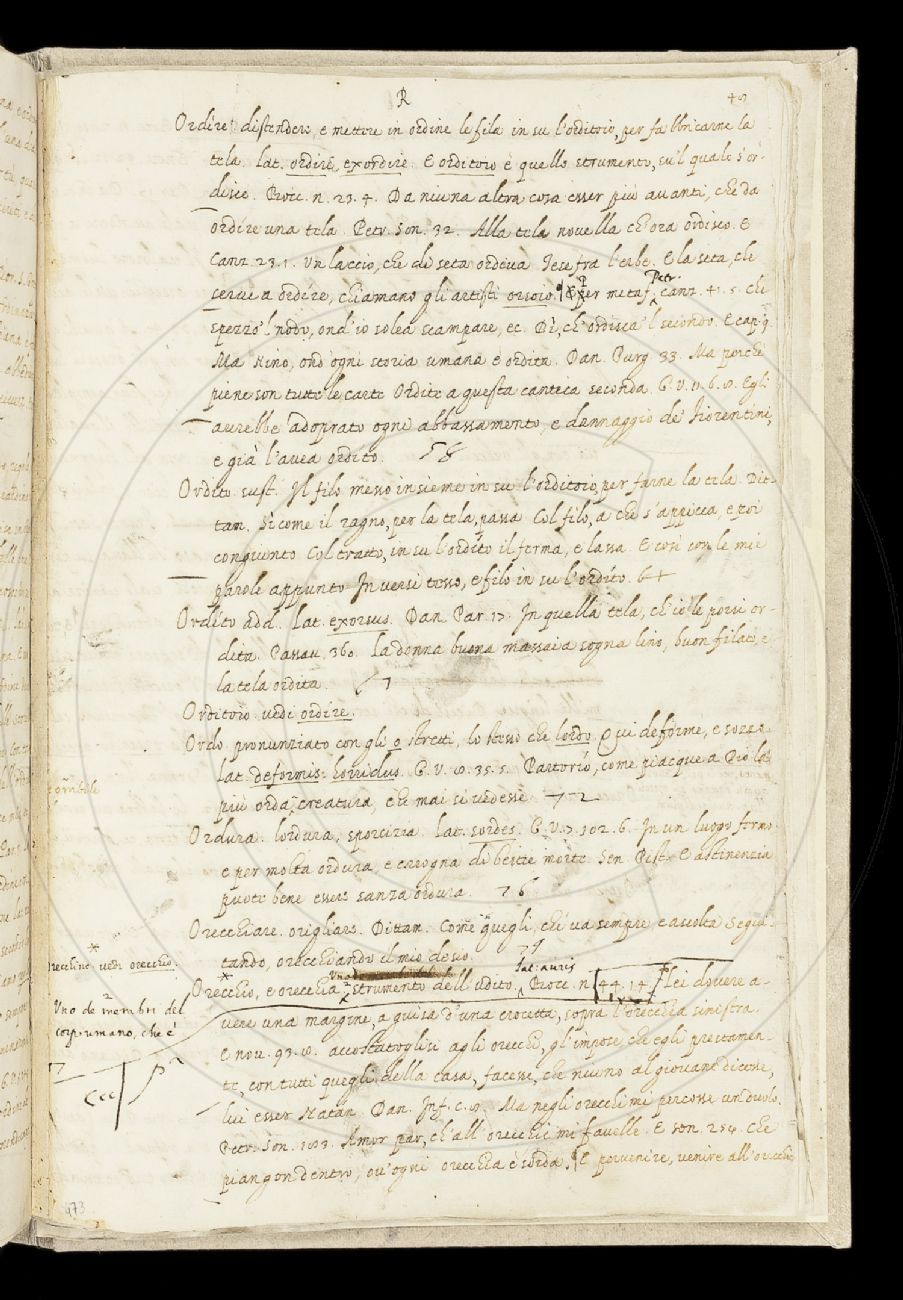 R
49
Ordire. distendere, e mettere in ordine le fila in su l'orditoio, per fabbricarne la
tela. lat. ordiri, exordiri. E orditoio è quello strumento, su'l quale s'or-
disce. Bocc. n. 23. 4. Da niuna altra cosa esser più avanti, che da
ordire una tela. Petr. Son. 32. Alla tela novella ch'ora ordisco. E
Canz. 23. 1. Un laccio, che di seta ordiva Tese fra l'erbe. E la seta, che
serve a ordire, chiamano gli artisti orsoio. ¶ Per metaf. Petr. canz. 41. 5. Che
spezzò'l nodo, ond'io solea scampare, ec. Dì, ch'ordisca'l secondo. E cap. 9.
Ma Nino, ond'ogni storia umana è ordita. Dan. Purg. 33. Ma perchè
piene son tutte le carte Ordite a questa cantica seconda. G. V. 11. 6. 9. Egli
aurebbe adoprato ogni abbassamento, e dannaggio de' Fiorentini,
e già l'avea ordito.
Ordito. sust. Il filo messo insieme in su l'orditoio, per farne la tela. Dit-
tam. Sì come il ragno, per la tela, passa Col filo, a che s'appicca, e poi
congiunto Col tratto, in su l'ordito il ferma, e lassa. E così con le mie
parole appunto In versi tesso, e filo in su l'ordito. 64
Ordito add. Lat. exorsus. Dan. Par. 17. In quella tela, ch'io le porsi or-
dita. Passav. 360. la donna buona massaia sogna lino, buon filato, e
la tela ordita.
Orditoio vedi ordire.
Ordo pronunziato con gli o stretti, lo stesso che lordo. Qui deforme, e sozzo.
lat. deformis. horridus. G. V. 9. 35. 5. Partorìo, come piacque a Dio la
più orda creatura, che mai si vedesse. 72
Ordura. lordura, sporcizia. lat. sordes. G. V. 7. 102. 6. In un luogo fermo
e per molta ordura, e carogna di bestie morte. Sen. Pist. E astinenzia
puote bene essere sanza ordura. 76
Orecchiare. origliare. Dittam. Come quegli, chi va sempre, e ascolta Segui-
tando, orecchiando il mio desio. 79
Orecchio, e orecchia strumento dell'udito. lat. auris Bocc. n. 44. 14. Lei dovere a-
vere una margine, a guisa d'una crocetta, sopra l'orecchia sinistra.
E nov. 93. 9. accostatoglisi agli orecchi, gl'impose che egli prestamen-
te, con tutti quegli della casa, facesse, che niuno al giovane dicesse,
lui esser Natan. Dan. Inf. c. 8. Ma negli orecchi mi percosse un duolo.
Petr. Son. 103. Amor par, ch'all'orecchie mi favelle. E son. 254. Che
piangon dentro, ov'ogni orecchia è sorda. ¶ E pervenire, venire all'orecchie
orecchino vedi orecchio.
Uno de membri del
corpo umano, che è
473